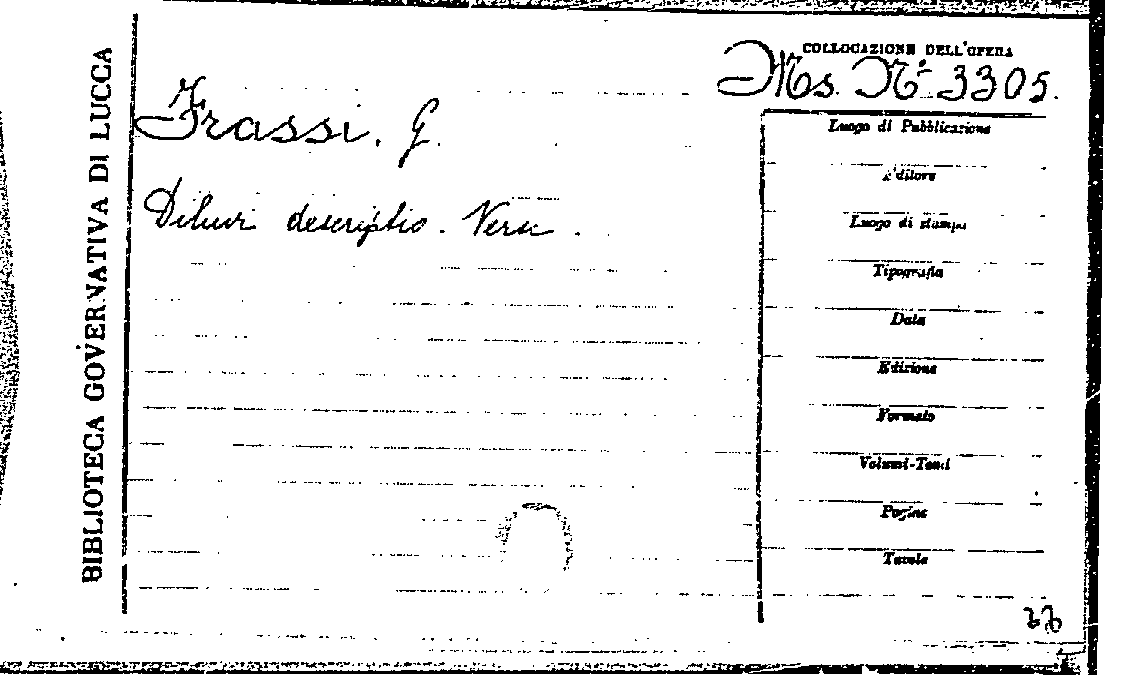 BIBLIOTECA GOVERNATIVA DI LUCCA
COLLOCAZIONE DELL'OPERA
Ms. Nº 3305.
Frassi. G.
Diluvi descriptio. Versi.
Luogo di Pubblicazione
Editore
Luogo di stampa
Tipografia
Data
Edizione
Formato
Volumi-Tomi
Pagine
Tavole